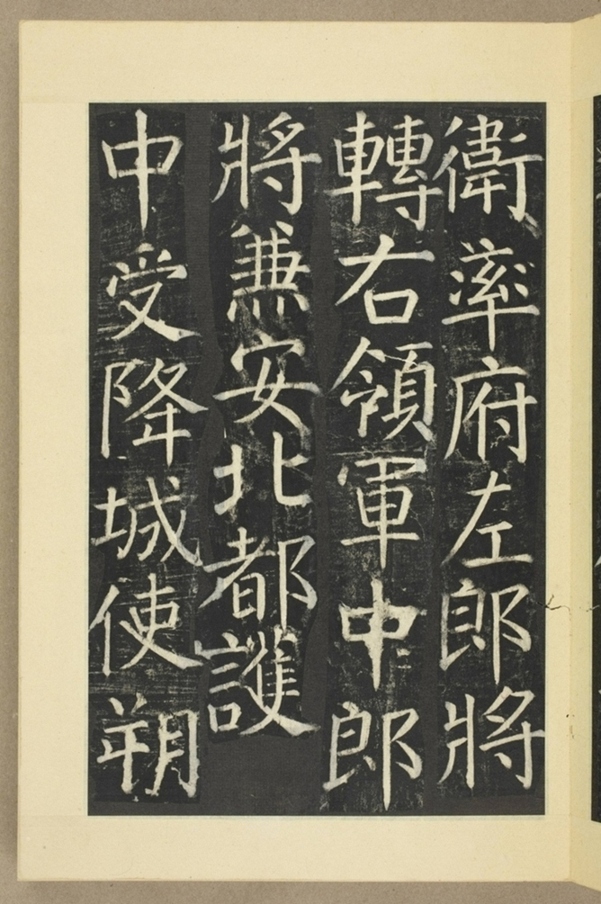 衛率府左郎將
轉右領軍中郎
將兼安北都護
中受降城使朔